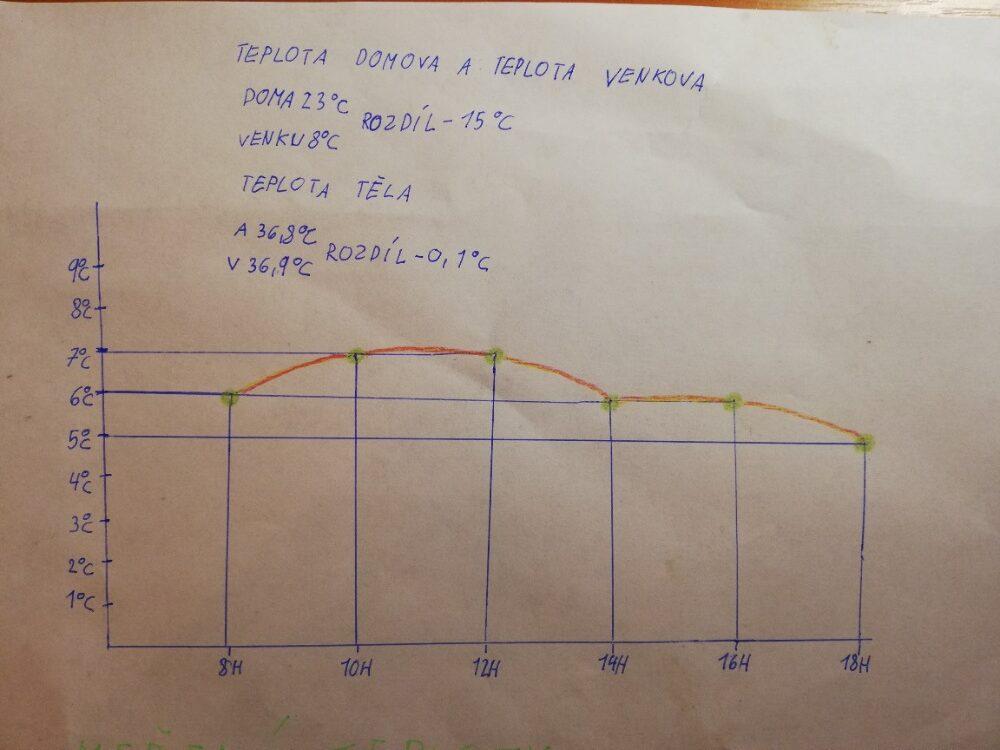 TEPLOTA DOMOVA A TEPLOTA VENKOVA
DOMA 23°C
ROZDÍL - 15°C
VENKU 8°C
TEPLOTA TĚLA
A 36,8°C
ROZDÍL - 0,1°C
V 36,9°C
9°C
8°C
7°C
6°C
5°C
4°C
3°C
2°C
1°C
8H 10H 12H 14H 16H 18H